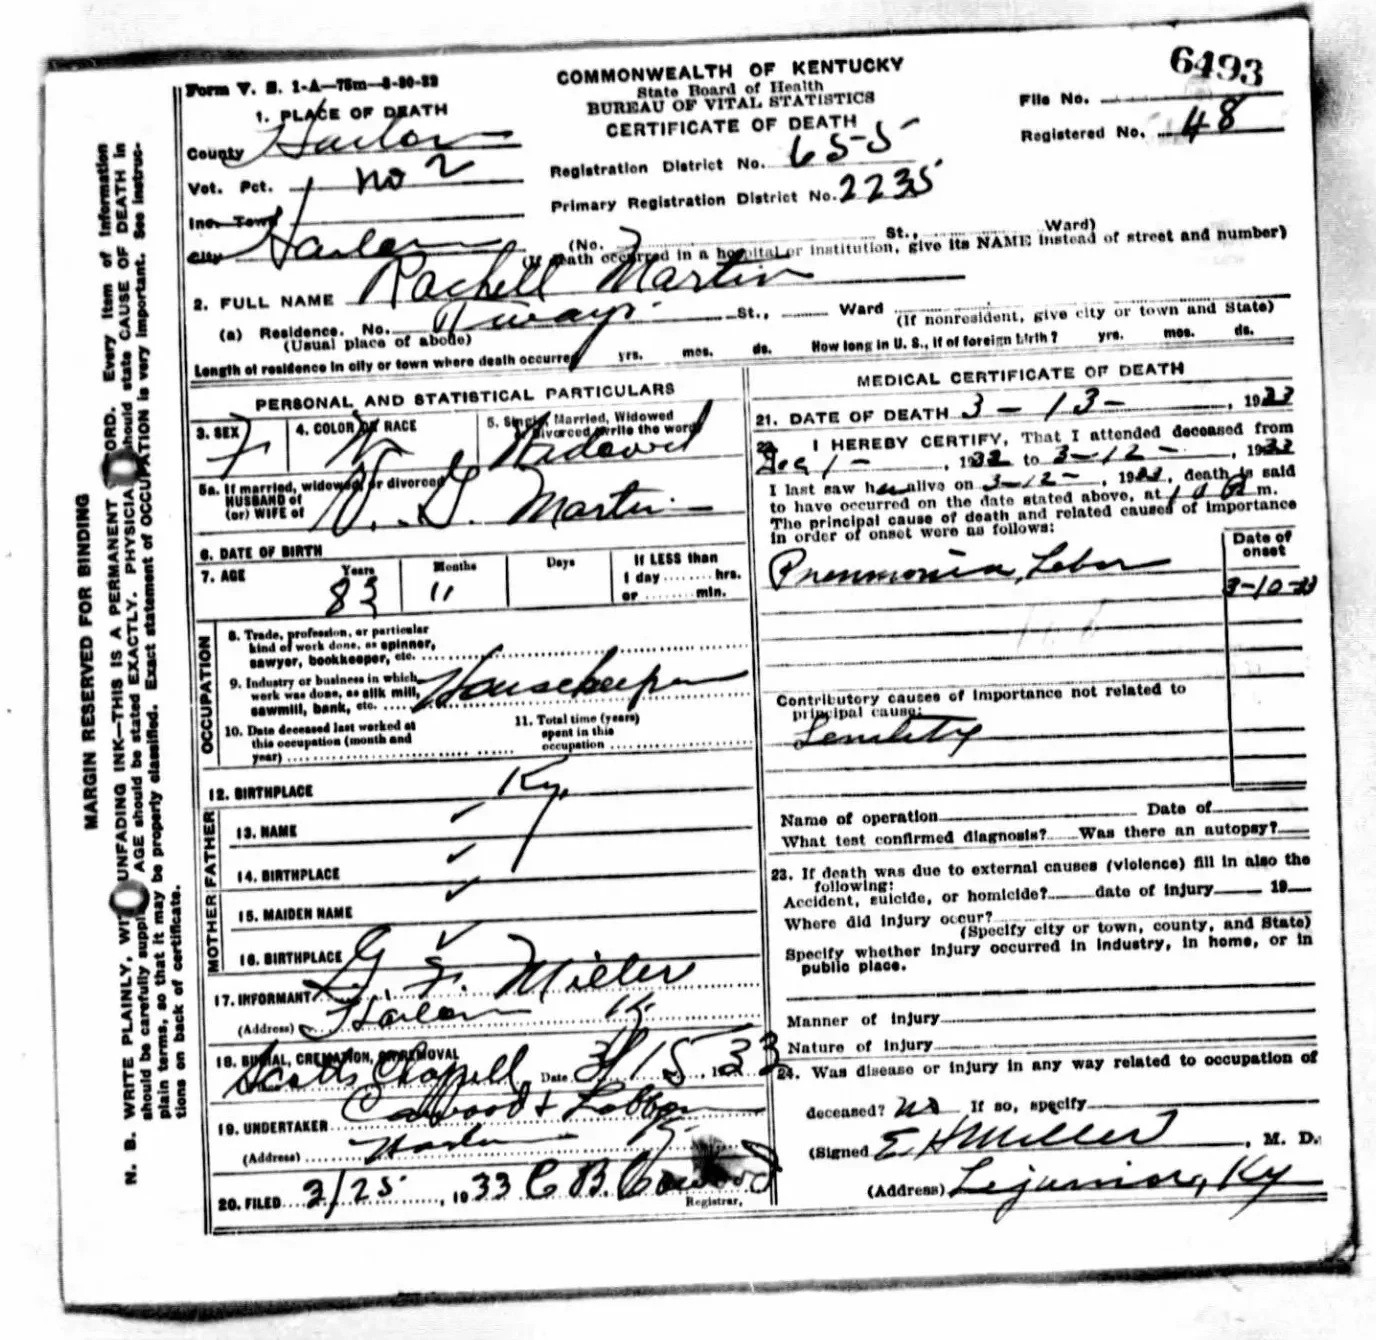 6493
Form V. S. 1-A—75m—8-30-32
COMMONWEALTH OF KENTUCKY
State Board of Health
BUREAU OF VITAL STATISTICS
CERTIFICATE OF DEATH
File No.
Registered No. 48
1. PLACE OF DEATH
County Harlan
Vot. Pct. No 2
Registration District No. 655
Primary Registration District No. 2235
Inc. Town
City Harlan (No. St., Ward)
(If death occurred in a hospital or institution, give its NAME instead of street and number)
2. FULL NAME Rachell Martin
(a) Residence. No. St., Ward
(Usual place of abode) (If nonresident, give city or town and State)
Length of residence in city or town where death occurred yrs. mos. ds. How long in U. S., if of foreign birth? yrs. mos. ds.
PERSONAL AND STATISTICAL PARTICULARS
3. SEX F
4. COLOR OR RACE W
5. Single, Married, Widowed or Divorced (write the word) Widowed
5a. If married, widowed, or divorced
HUSBAND of
(or) WIFE of Martin
6. DATE OF BIRTH
7. AGE Years Months Days If LESS than
83 11 1 day hrs.
or min.
OCCUPATION
8. Trade, profession, or particular
kind of work done, as spinner,
sawyer, bookkeeper, etc.
9. Industry or business in which
work was done, as silk mill,
sawmill, bank, etc. Housekeeper
10. Date deceased last worked at
this occupation (month and
year)
11. Total time (years)
spent in this
occupation
12. BIRTHPLACE Ky,
FATHER
13. NAME
14. BIRTHPLACE
MOTHER
15. MAIDEN NAME
16. BIRTHPLACE
17. INFORMANT G. F. Miller
(Address) Harlan Ky
18. BURIAL, CREMATION, OR REMOVAL
Chappell Date 3/15, 1933
19. UNDERTAKER Cawood &
(Address) Harlan Ky.
20. FILED 3/25, 1933 C B. Cawood
Registrar.
MEDICAL CERTIFICATE OF DEATH
21. DATE OF DEATH 3-13-, 1933
22. I HEREBY CERTIFY, That I attended deceased from
Dec 1-, 1932 to 3-12-, 1933
I last saw her alive on 3-12-, 1933, death is said
to have occurred on the date stated above, at m.
The principal cause of death and related causes of importance
in order of onset were as follows:
Date of
onset
Pneumonia, Lobar 3-10-33
Contributory causes of importance not related to
principal cause:
Senility
Name of operation Date of
What test confirmed diagnosis? Was there an autopsy?
23. If death was due to external causes (violence) fill in also the
following:
Accident, suicide, or homicide? date of injury 19
Where did injury occur?
(Specify city or town, county, and State)
Specify whether injury occurred in industry, in home, or in
public place.
Manner of injury
Nature of injury
24. Was disease or injury in any way related to occupation of
deceased? No If so, specify
(Signed E H Miller, M. D.
(Address) Lejunior, Ky
MARGIN RESERVED FOR BINDING
N. B. WRITE PLAINLY, WITH UNFADING INK—THIS IS A PERMANENT RECORD. Every item of information
should be carefully supplied. AGE should be stated EXACTLY. PHYSICIANS should state CAUSE OF DEATH in
plain terms, so that it may be properly classified. Exact statement of OCCUPATION is very important. See instruc-
tions on back of certificate.